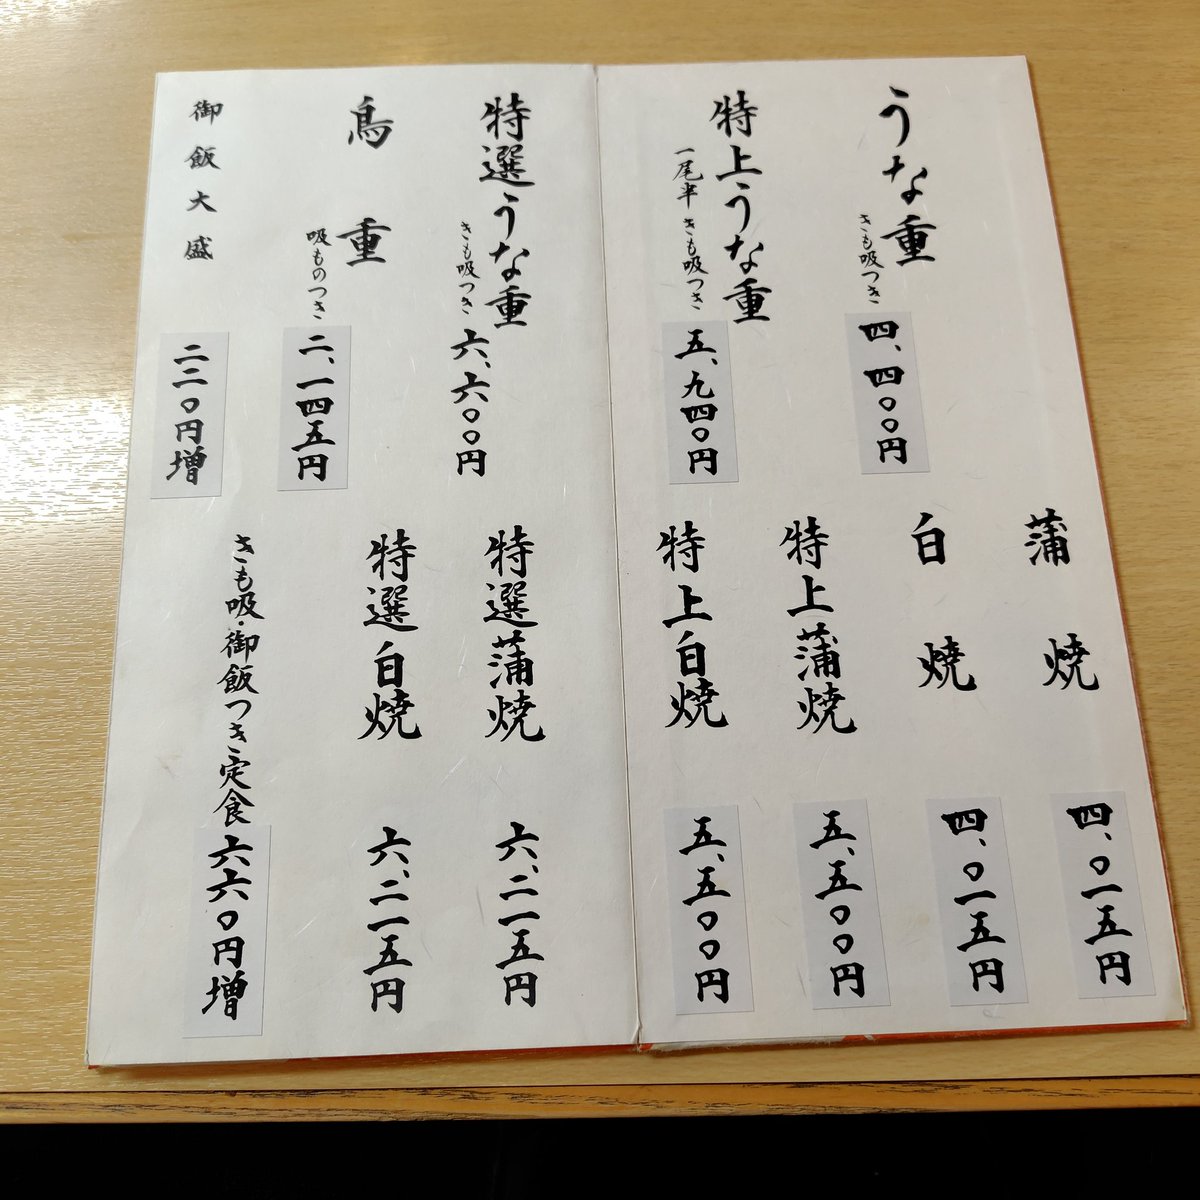 うな重
きも吸つき
四、四〇〇円
特上うな重
一尾半 きも吸つき
五、九四〇円
蒲焼
四、〇一五円
白焼
四、〇一五円
特上蒲焼
五、五〇〇円
特上白焼
五、五〇〇円
特選うな重
きも吸つき
六、六〇〇円
鳥重
吸ものつき
二、一四五円
御飯大盛
二二〇円増
特選蒲焼
六、二一五円
特選白焼
六、二一五円
きも吸・御飯つき定食
六六〇円増